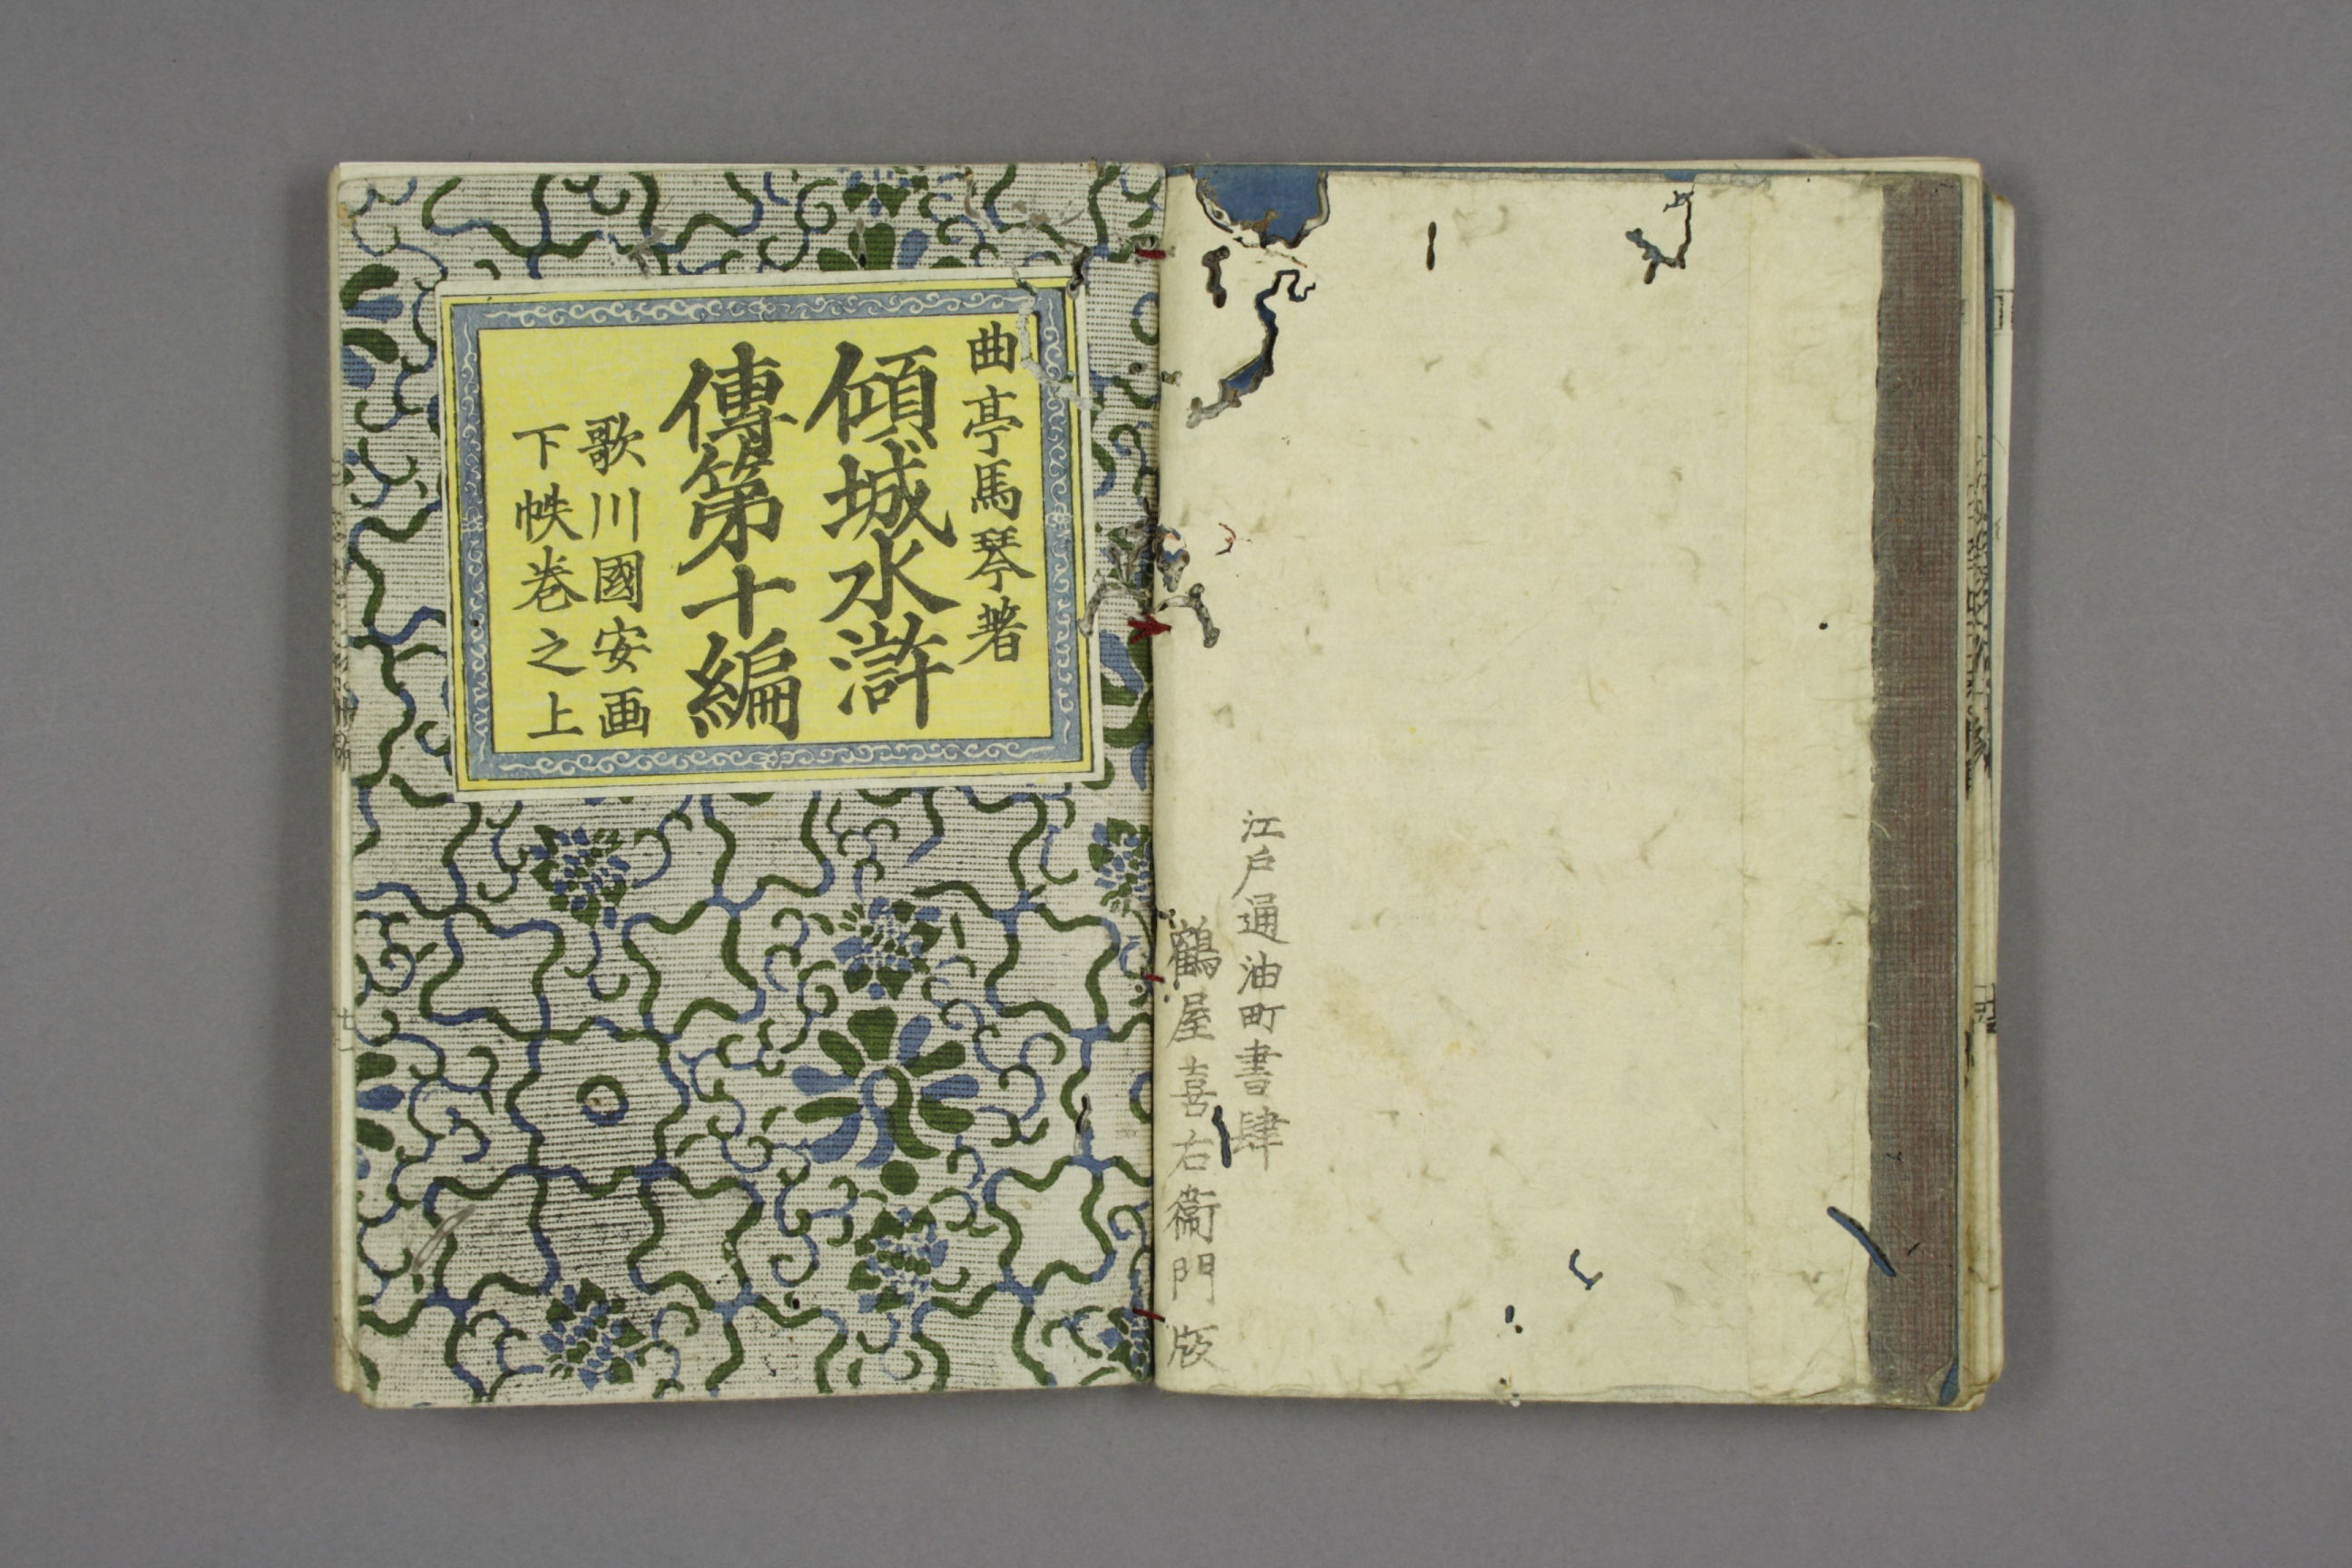 江戸通油町書肆
鶴屋喜右衞門版
曲亭馬琴著
傾城水滸
傳第十編
歌川國安画
下帙巻之上